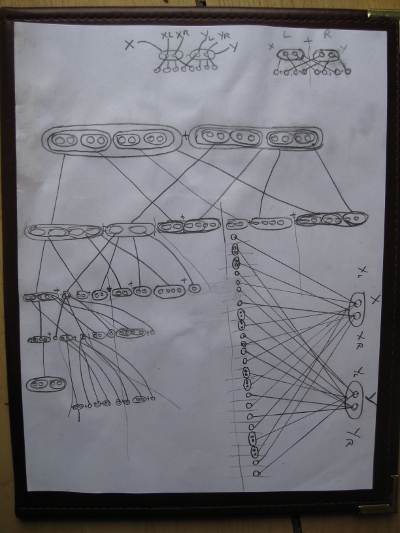 X XL XR YL YR Y
L + R
X Y
+
+ +
+ + +
+ +
XL X
XR
YL Y
YR